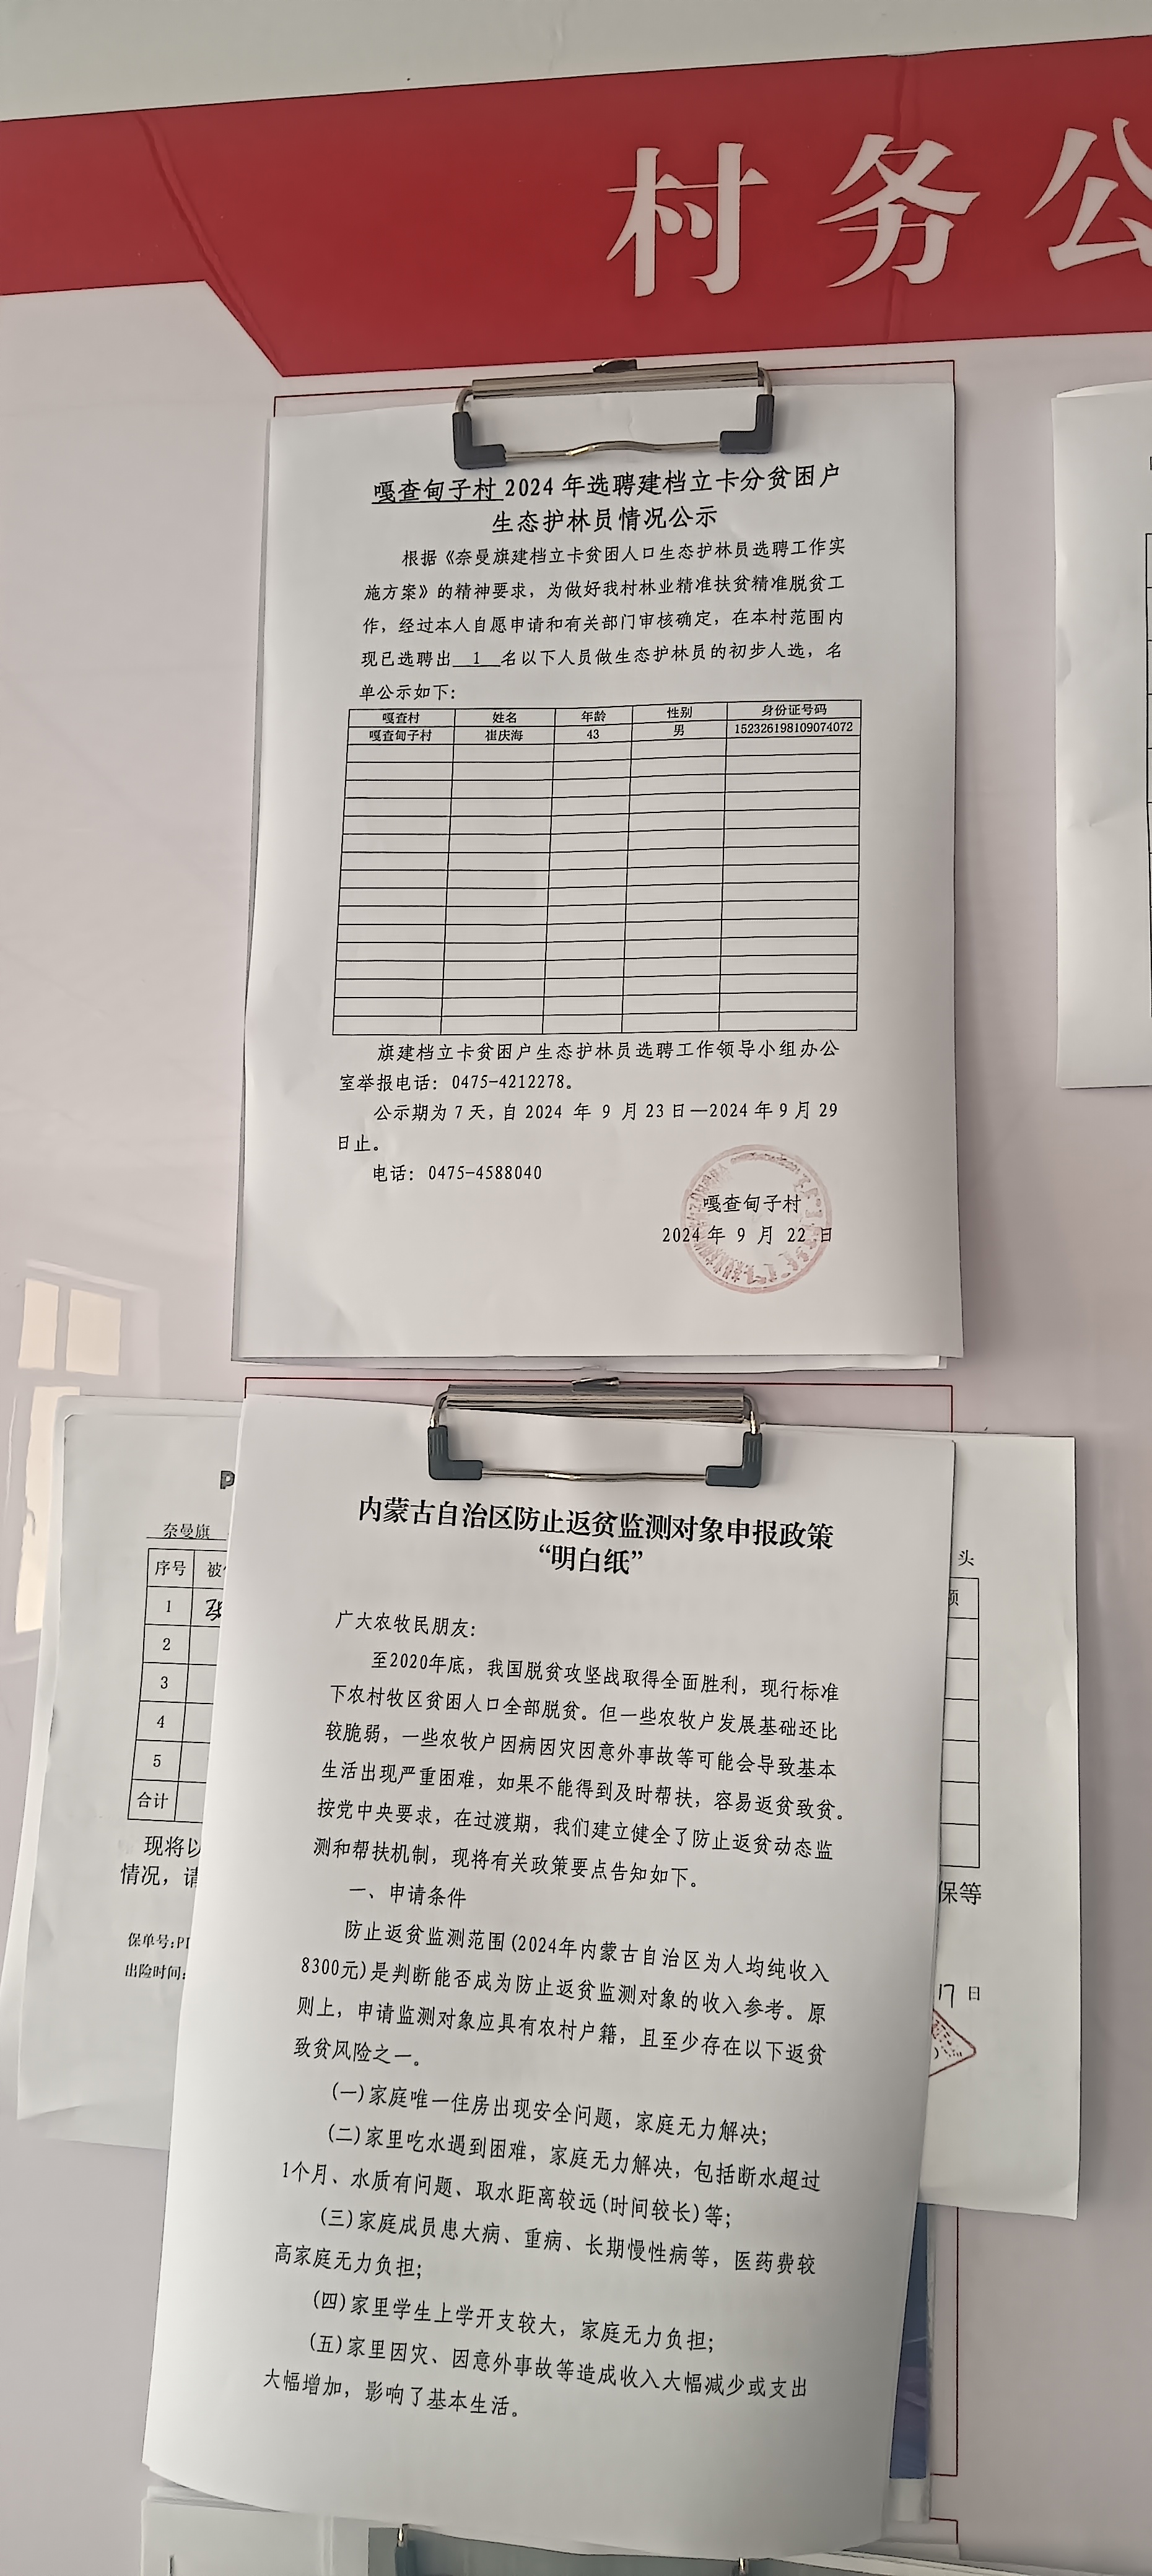 村务公
嘎查甸子村 2024 年选聘建档立卡分贫困户
生态护林员情况公示
根据《奈曼旗建档立卡贫困人口生态护林员选聘工作实
施方案》的精神要求，为做好我村林业精准扶贫精准脱贫工
作，经过本人自愿申请和有关部门审核确定，在本村范围内
现已选聘出 1 名以下人员做生态护林员的初步人选，名
单公示如下：
嘎查村 姓名 年龄 性别 身份证号码
嘎查甸子村 崔庆海 43 男 152326198109074072
旗建档立卡贫困户生态护林员选聘工作领导小组办公
室举报电话：0475-4212278。
公示期为 7 天，自 2024 年 9 月 23 日—2024 年 9 月 29
日止。
电话：0475-4588040
嘎查甸子村
2024 年 9 月 22 日
内蒙古自治区防止返贫监测对象申报政策
“明白纸”
广大农牧民朋友：
至2020年底，我国脱贫攻坚战取得全面胜利，现行标准
下农村牧区贫困人口全部脱贫。但一些农牧户发展基础还比
较脆弱，一些农牧户因病因灾因意外事故等可能会导致基本
生活出现严重困难，如果不能得到及时帮扶，容易返贫致贫。
按党中央要求，在过渡期，我们建立健全了防止返贫动态监
测和帮扶机制，现将有关政策要点告知如下。
一、申请条件
防止返贫监测范围(2024年内蒙古自治区为人均纯收入
8300元)是判断能否成为防止返贫监测对象的收入参考。原
则上，申请监测对象应具有农村户籍，且至少存在以下返贫
致贫风险之一。
(一)家庭唯一住房出现安全问题，家庭无力解决；
(二)家里吃水遇到困难，家庭无力解决，包括断水超过
1个月、水质有问题、取水距离较远(时间较长)等；
(三)家庭成员患大病、重病、长期慢性病等，医药费较
高家庭无力负担；
(四)家里学生上学开支较大，家庭无力负担；
(五)家里因灾、因意外事故等造成收入大幅减少或支出
大幅增加，影响了基本生活。
P
奈曼旗
序号 被
1
2
3
4
5
合计
现将以
情况，请
保单号:PI
出险时间:
头
额
保等
17 日